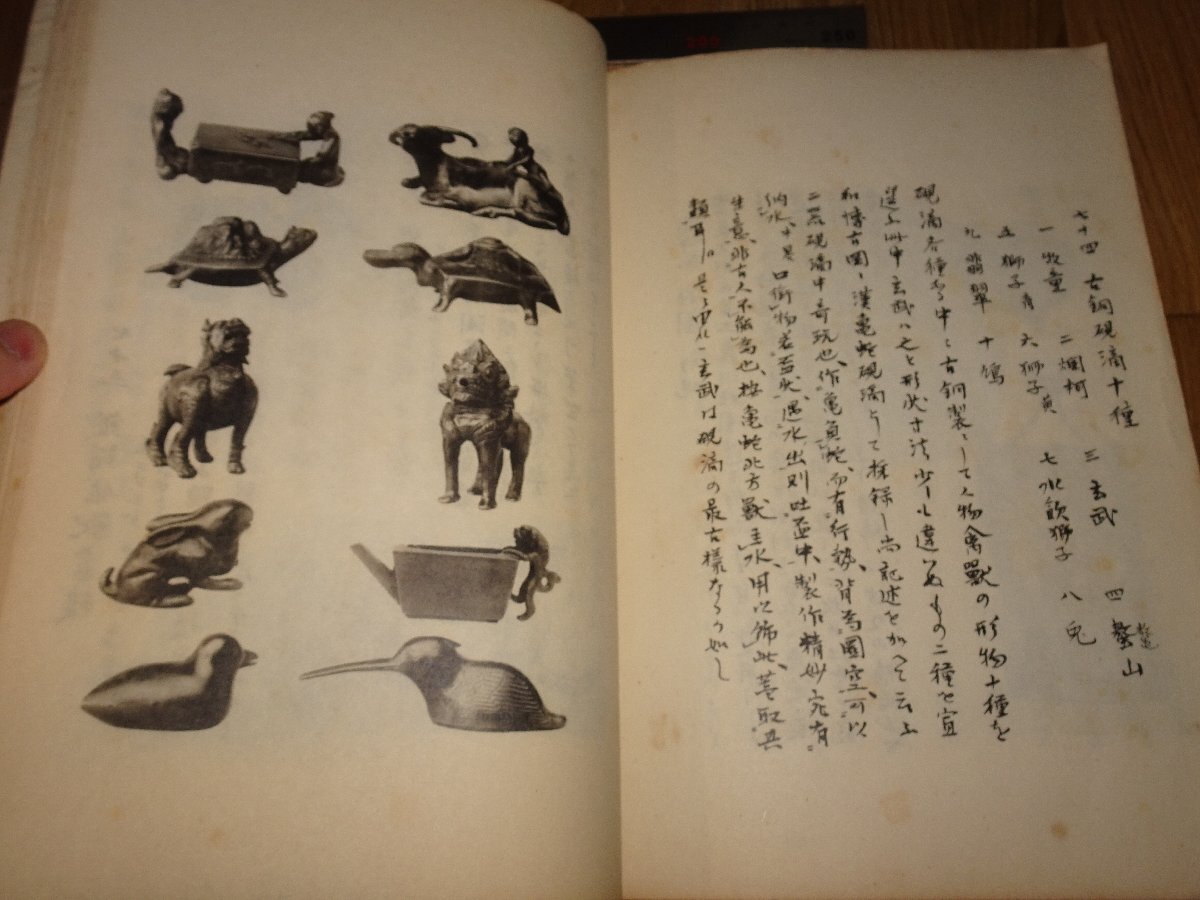 七十四 古銅硯滴十種
一 牧童 二 爛柯 三 玄武 四 鰲山
五 獅子 六 獅子 七 水飲獅子 八 兎
九 翡翠 十 鴿
硯滴各種ある中に古銅製にして人物禽獸の形物十種を
選ふ此中玄武は之と形状寸法少しも違はぬもの二種を宣
和博古図に漢亀蛇硯滴として採録し尚記述をかへて云ふ
二器硯滴中奇玩也、作亀負蛇、而有行勢、背為圜空、可以
納水、口銜物若盃状、遇水出則吐盃中、製作精妙、宛有
生意、非古人不能為也、按亀蛇北方獣、主水、用以飾此、蓋取其
類耳
玄武は硯滴の最古様なるが如し
200 250